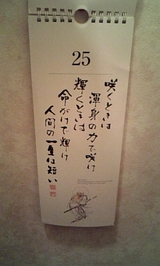 25
咲くときは
渾身の力で咲け
輝くときは
命がけで輝け
人間の一生は短い